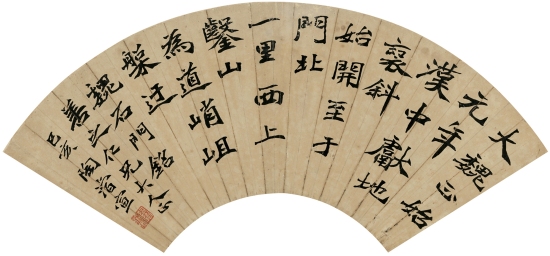 大魏正始
元年
漢中獻地
褒斜
始開至于
門北
一里西上
鑿山
為道峭岨
槃迂
魏石門銘
善之仁兄大人正
己亥陶濬宣